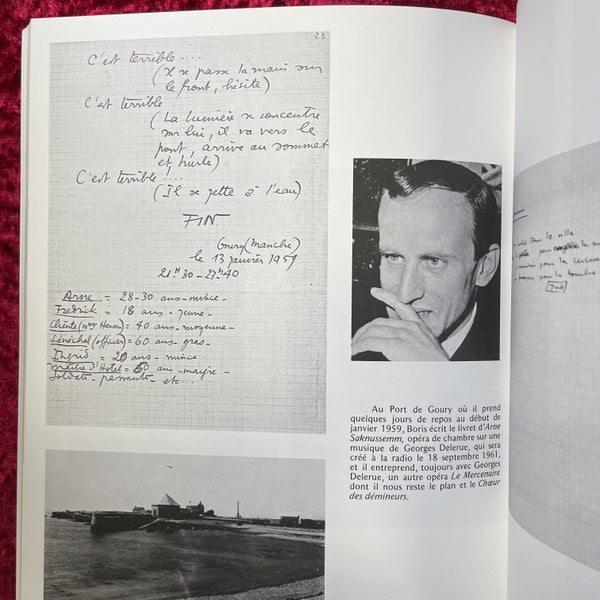 23
C'est terrible....
(X se passe la main sur
le front, hésite)
C'est terrible
(La lumière se concentre
sur lui, il va vers le
pont, arrive au sommet
et hurle)
C'est terrible!...
(Il se jette à l'eau)
FIN.
Goury (Manche)
le 13 janvier 1959
21H30 - 23H40
Arne = 28-30 ans - mince -
Fredrick = 18 ans - jeune -
Cliente (Mme Hansen) = 40 ans - moyenne -
Sénéchal (officier) = 60 ans - gras.
Ingrid = 20 ans - mince
Maître d'Hotel = 60 ans - maigre -
Soldats - passants - etc...
Au Port de Goury où il prend
quelques jours de repos au début de
janvier 1959, Boris écrit le livret d'Arne
Saknussemm, opéra de chambre sur une
musique de Georges Delerue, qui sera
créé à la radio le 18 septembre 1961,
et il entreprend, toujours avec Georges
Delerue, un autre opéra Le Mercenaire
dont il nous reste le plan et le Chœur
des démineurs.
dans la ville
pour
pour les
pour la tombe